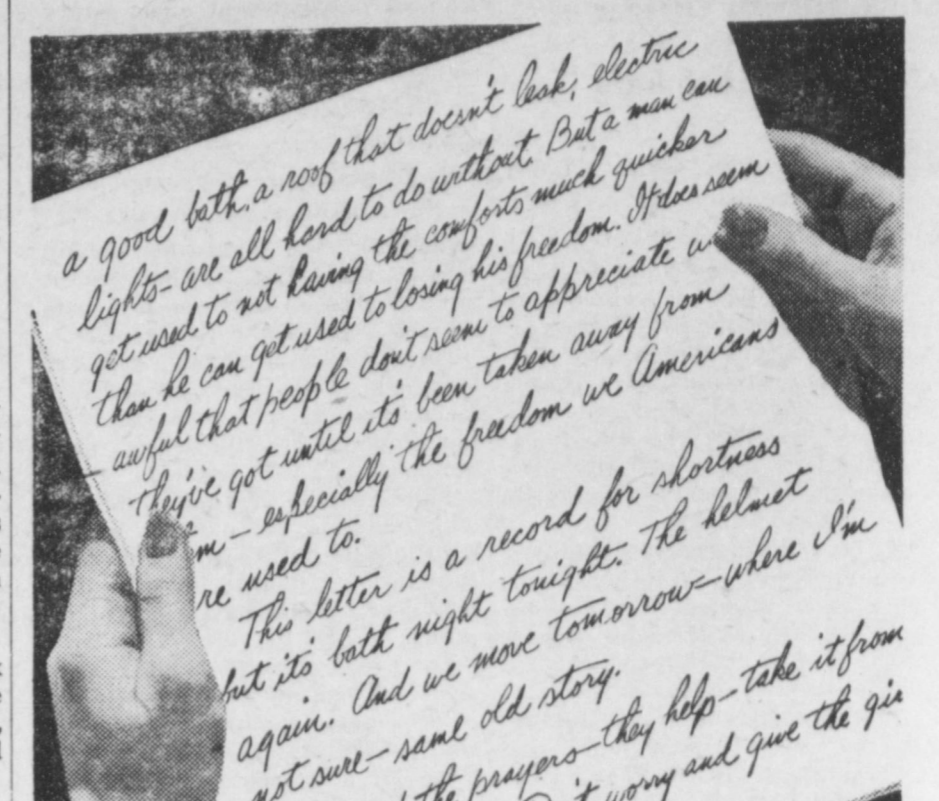 a good bath, a roof that doesn't leak, electric
lights - are all hard to do without. But a man can
get used to not having the comforts much quicker
than he can get used to losing his freedom. It does seem
awful that people don't seem to appreciate
they've got until it's been taken away from
m - especially the freedom we Americans
re used to.
This letter is a record for shortness
but it's bath night tonight. The helmet
again. And we move tomorrow - where I'm
not sure - same old story.
the prayers - they help - take it from
worry and give the